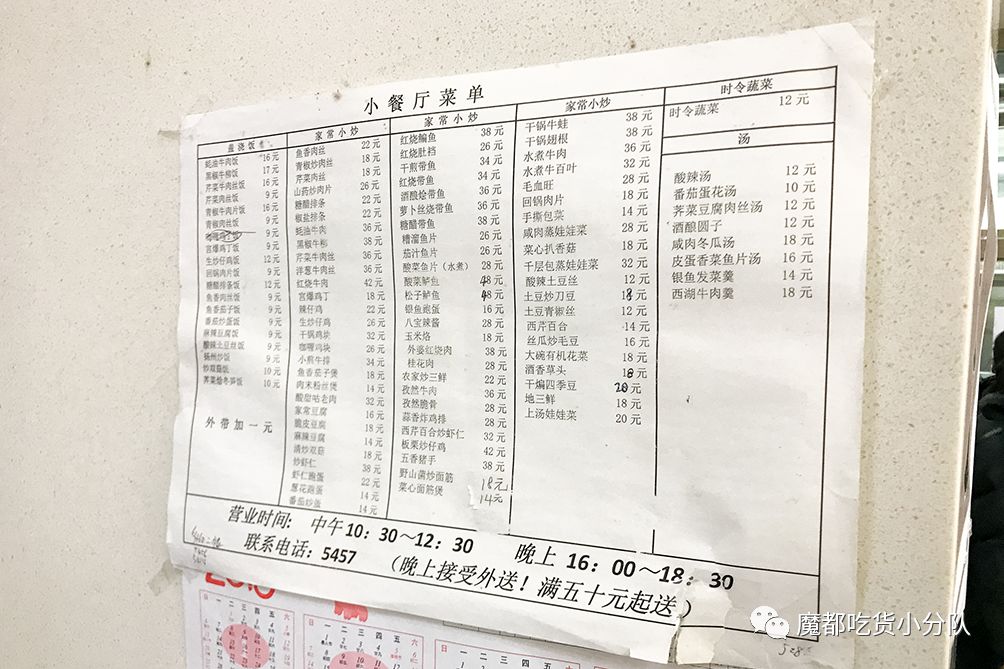 小餐厅菜单
盖浇饭
蚝油牛肉饭 16元
黑椒牛柳饭 17元
芹菜牛肉丝饭 16元
芹菜肉丝饭 9元
青椒牛肉片饭 16元
青椒肉丝饭 9元
9元
宫爆鸡丁饭 9元
生炒仔鸡饭 12元
回锅肉片饭 9元
糖醋排条饭 12元
鱼香肉丝饭 9元
鱼香茄子饭 9元
番茄炒蛋饭 9元
麻辣豆腐饭 9元
酸辣土豆丝饭 9元
扬州炒饭 9元
炒双菇饭 10元
荠菜烩冬笋饭 10元
外带加一元
家常小炒
鱼香肉丝 22元
青椒炒肉丝 18元
芹菜肉丝 18元
山药炒肉片 26元
糖醋排条 22元
椒盐排条 22元
蚝油牛肉 36元
黑椒牛柳 38元
芹菜牛肉丝 36元
洋葱牛肉丝 36元
红烧牛肉 42元
宫爆鸡丁 18元
辣仔鸡 22元
生炒仔鸡 26元
干锅鸡块 32元
咖喱鸡块 26元
小煎牛排 34元
鱼香茄子煲 18元
肉末粉丝煲 14元
酸甜咕老肉 32元
家常豆腐 16元
脆皮豆腐 18元
麻辣豆腐 14元
清炒双菇 18元
炒虾仁 38元
虾仁跑蛋 22元
葱花跑蛋 14元
番茄炒蛋 14元
家常小炒
红烧鳊鱼 38元
红烧肚裆 26元
干煎带鱼 34元
红烧带鱼 34元
酒酿烩带鱼 36元
萝卜丝烧带鱼 36元
糖醋带鱼 38元
糟溜鱼片 26元
茄汁鱼片 26元
酸菜鱼片(水煮) 28元
酸菜鲈鱼 48元
松子鲈鱼 48元
银鱼跑蛋 16元
八宝辣酱 28元
玉米烙 18元
外婆红烧肉 38元
桂花肉 28元
农家炒三鲜 22元
孜然牛肉 36元
孜然脆骨 28元
蒜香炸鸡排 28元
西芹百合炒虾仁 32元
板栗炒仔鸡 42元
五香猪手 38元
野山菌炒面筋 18元
菜心面筋煲 14元
家常小炒
干锅牛蛙 38元
干锅翅根 38元
水煮牛肉 36元
水煮牛百叶 32元
毛血旺 28元
回锅肉片 18元
手撕包菜 14元
咸肉蒸娃娃菜 28元
菜心扒香菇 18元
千层包蒸娃娃菜 32元
酸辣土豆丝 12元
土豆炒刀豆 18元
土豆青椒丝 12元
西芹百合 14元
丝瓜炒毛豆 16元
大碗有机花菜 18元
酒香草头 18元
干煸四季豆 20元
地三鲜 18元
上汤娃娃菜 20元
时令蔬菜
时令蔬菜 12元
汤
酸辣汤 12元
番茄蛋花汤 10元
荠菜豆腐肉丝汤 12元
酒酿圆子 12元
咸肉冬瓜汤 18元
皮蛋香菜鱼片汤 16元
银鱼发菜羹 14元
西湖牛肉羹 18元
营业时间: 中午10:30~12:30 晚上 16:00~18:30
联系电话:5457 (晚上接受外送!满五十元起送)
魔都吃货小分队